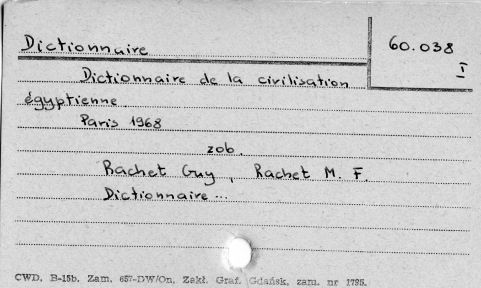 Dictionnaire
60.038
I
Dictionnaire de la civilisation
égyptienne
Paris 1968
zob.
Rachet Guy, Rachet M. F.
Dictionnaire...
CWD, B-15b. Zam. 657-DW/On, Zakł. Graf. Gdańsk, zam. nr 1795.